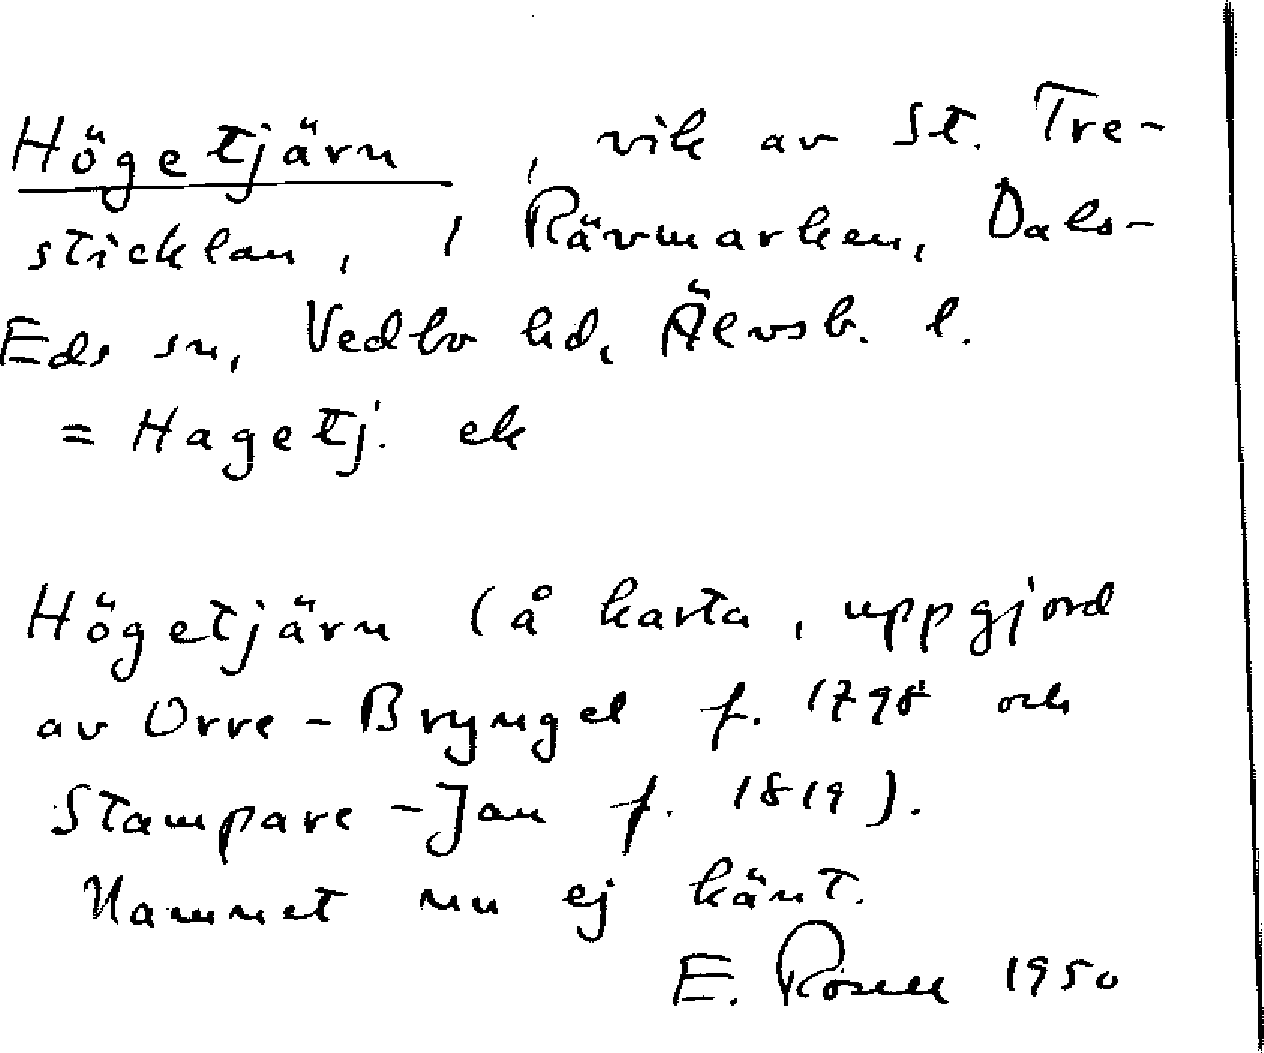 Högetjärn, vik av St. Tre-
sticklan, i Rävmarken, Dals-
Eds sn, Vedbo hd, Älvsb. l.
= Hagetj. ek
Högetjärn (å karta, uppgjord
av Orre-Bryngel f. 1798 och
Stampare-Jan f. 1819).
Namnet nu ej känt.
E. Rosell 1950